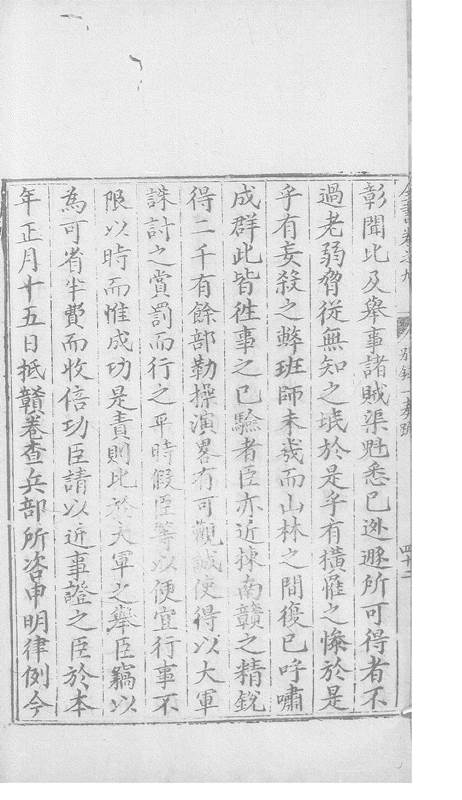 全書卷之九 別錄一奏疏 四十二
彰聞比及舉事諸賊渠魁悉已逃遯所可得者不
過老弱脅從無知之氓於是乎有橫罹之慘於是
乎有妄殺之弊班師未幾而山林之間復已呼嘯
成群此皆徃事之已驗者臣亦近揀南贛之精銳
得二千有餘部勒操演畧有可觀誠使得以大軍
誅討之賞罰而行之平時假臣等以便宜行事不
限以時而惟成功是責則比於大軍之舉臣竊以
為可省半費而收倍功臣請以近事證之臣於本
年正月十五日抵贛卷查兵部所咨申明律例今